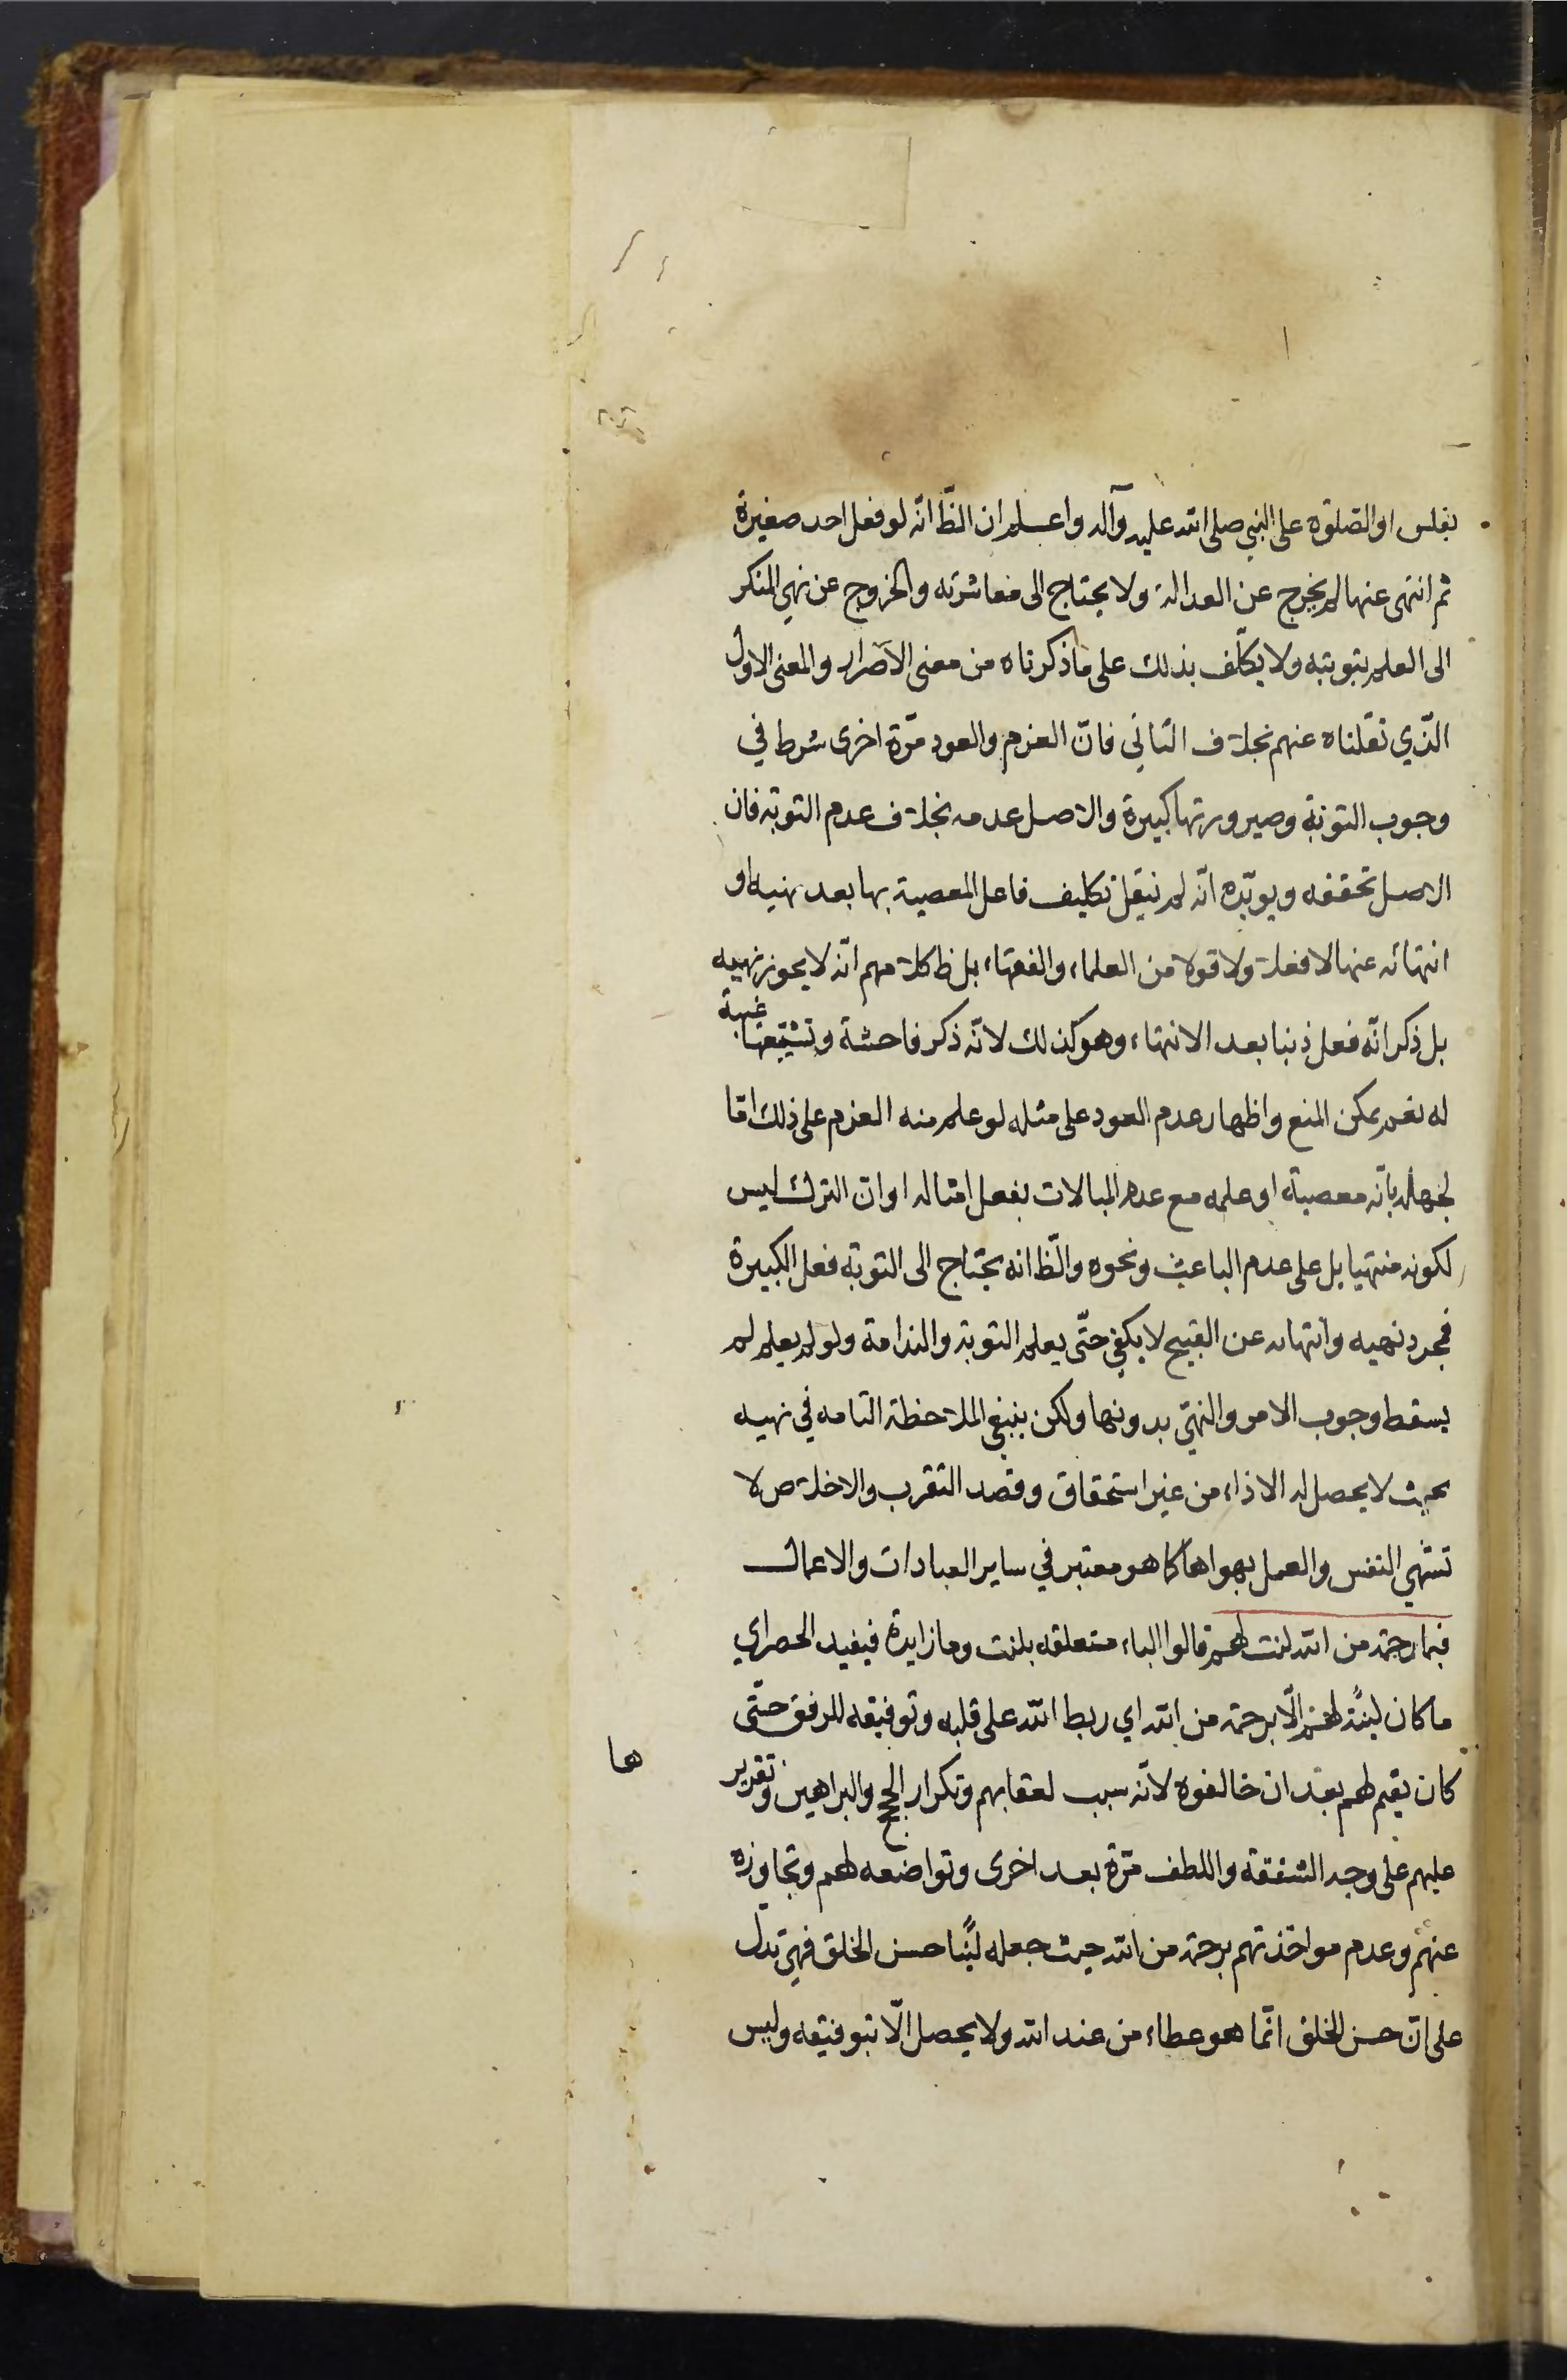 بفلس او الصلوة على النبي صلى الله عليه وآله واعلم ان الظ انّه لو فعل احد صغيرة
ثم انتهى عنها لم يخرج عن العدالة ولا يحتاج الى معاشرته والخروج عن نهي المنكر
الى العلم بتوبته ولا يكلّف بذلك على ما ذكرناه من معنى الاصرار والمعنى الاول
الذّي نقلناه عنهم بخلاف الثاني فانّ العزم والعود مرّة اخرى شرط في
وجوب التوبة وصيرورتها كبيرة والاصل عدمه بخلاف عدم التوبة فان
الاصل تحققه ويويّده انّه لم ينقل تكليف فاعل المعصية بها بعد نهيه او
انتهائه عنها لا فعلا ولا قولا من العلماء والفقهاء بل ظ كلامهم انّه لا يجوز نهيه
بل ذكر انّه فعل ذنبا بعد الانتهاء وهو كذلك لانّه ذكر فاحشة وتشييعها غيبة
له نعم يمكن المنع واظهار عدم العود على مثله لو علم منه العزم على ذلك امّا
لجهله بانّه معصية او علمه مع عدم المبالات بفعل امثاله او انّ الترك ليس
لكونه منتهيا بل على عدم الباعث ونحوه والظّ انه يحتاج الى التوبة فعل الكبيرة
فمجرد نهيه وانتهائه عن القبيح لا يكفي حتّى يعلم التوبة والندامة ولو لم يعلم لم
يسقط وجوب الامر والنهيّ بدونها ولكن ينبغي الملاحظة التامه في نهيه
بحيث لا يحصل له الاذاء من غير استحقاق وقصد التقرب والاخلاص لا
تشهي النفس والعمل بهواها كما هو معتبر في ساير العبادات والاعمال
فبما رحمة من الله لنت لهم قالوا الباء متعلقه بلنت وما زايدة فيفيد الحصر اي
ما كان لينّة لهم الّا برحمة من الله اي ربط الله على قلبه وتوفيقه للرفق حتّى
كان يقيم لهم بعد ان خالفوه لانّه سبب لعقابهم وتكرار الحجج والبراهين وتقرير
ها
عليهم على وجه الشفقة واللطف مرّة بعد اخرى وتواضعه لهم وتجاوزه
عنهم وعدم مواخذتهم برحمة من الله حيث جعله ليّنا حسن الخلق فهي تدل
على انّ حسن الخلق انّما هو عطاء من عند الله ولا يحصل الّا بتوفيقه وليس